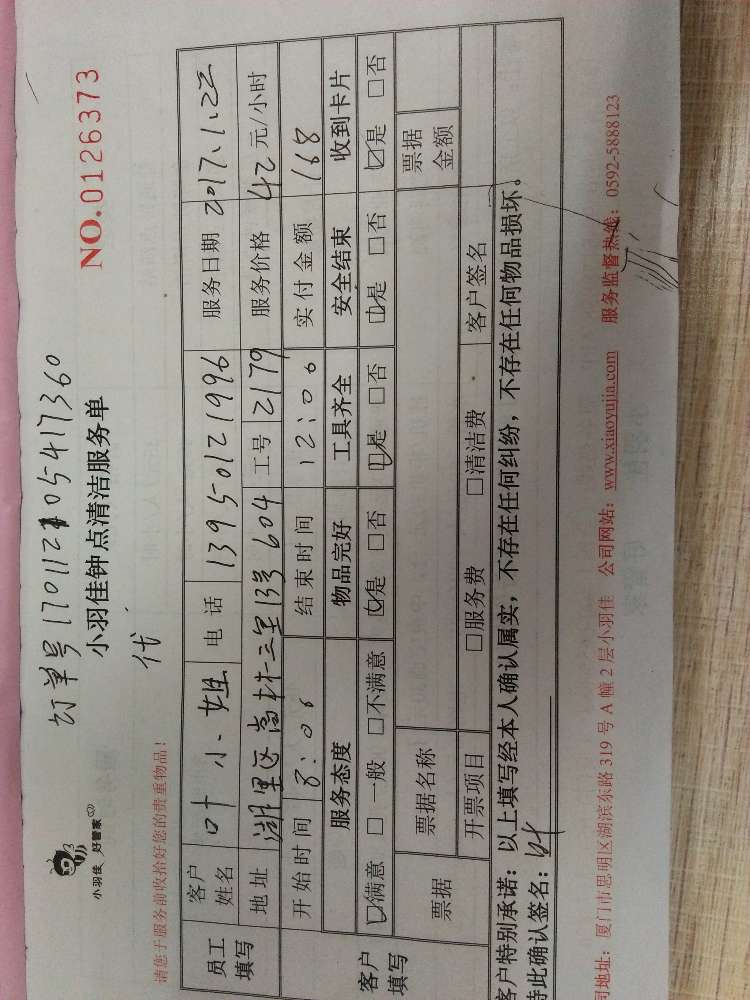 订单号170112105417360
小羽佳 好管家
小羽佳钟点清洁服务单
NO.0126373
代
请您于服务前收拾好您的贵重物品！
员工填写 客户姓名 叶小姐 电话 13950121996 服务日期 2017.1.22
地址 湖里区高林三里13号604 工号 2179 服务价格 42元/小时
开始时间 8:06 结束时间 12:06 实付金额 168
客户填写 服务态度 物品完好 工具齐全 安全结束 收到卡片
☑满意 □一般 □不满意 ☑是 □否 ☑是 □否 ☑是 □否 ☑是 □否
票据 票据名称 票据金额
开票项目 □服务费 □清洁费 客户签名
客户特别承诺：以上填写经本人确认属实，不存在任何纠纷，不存在任何物品损坏。
特此确认签名：叶
司地址：厦门市思明区湖滨东路319号A幢2层小羽佳 公司网站：www.xiaoyujia.com 服务监督热线：0592-5888123